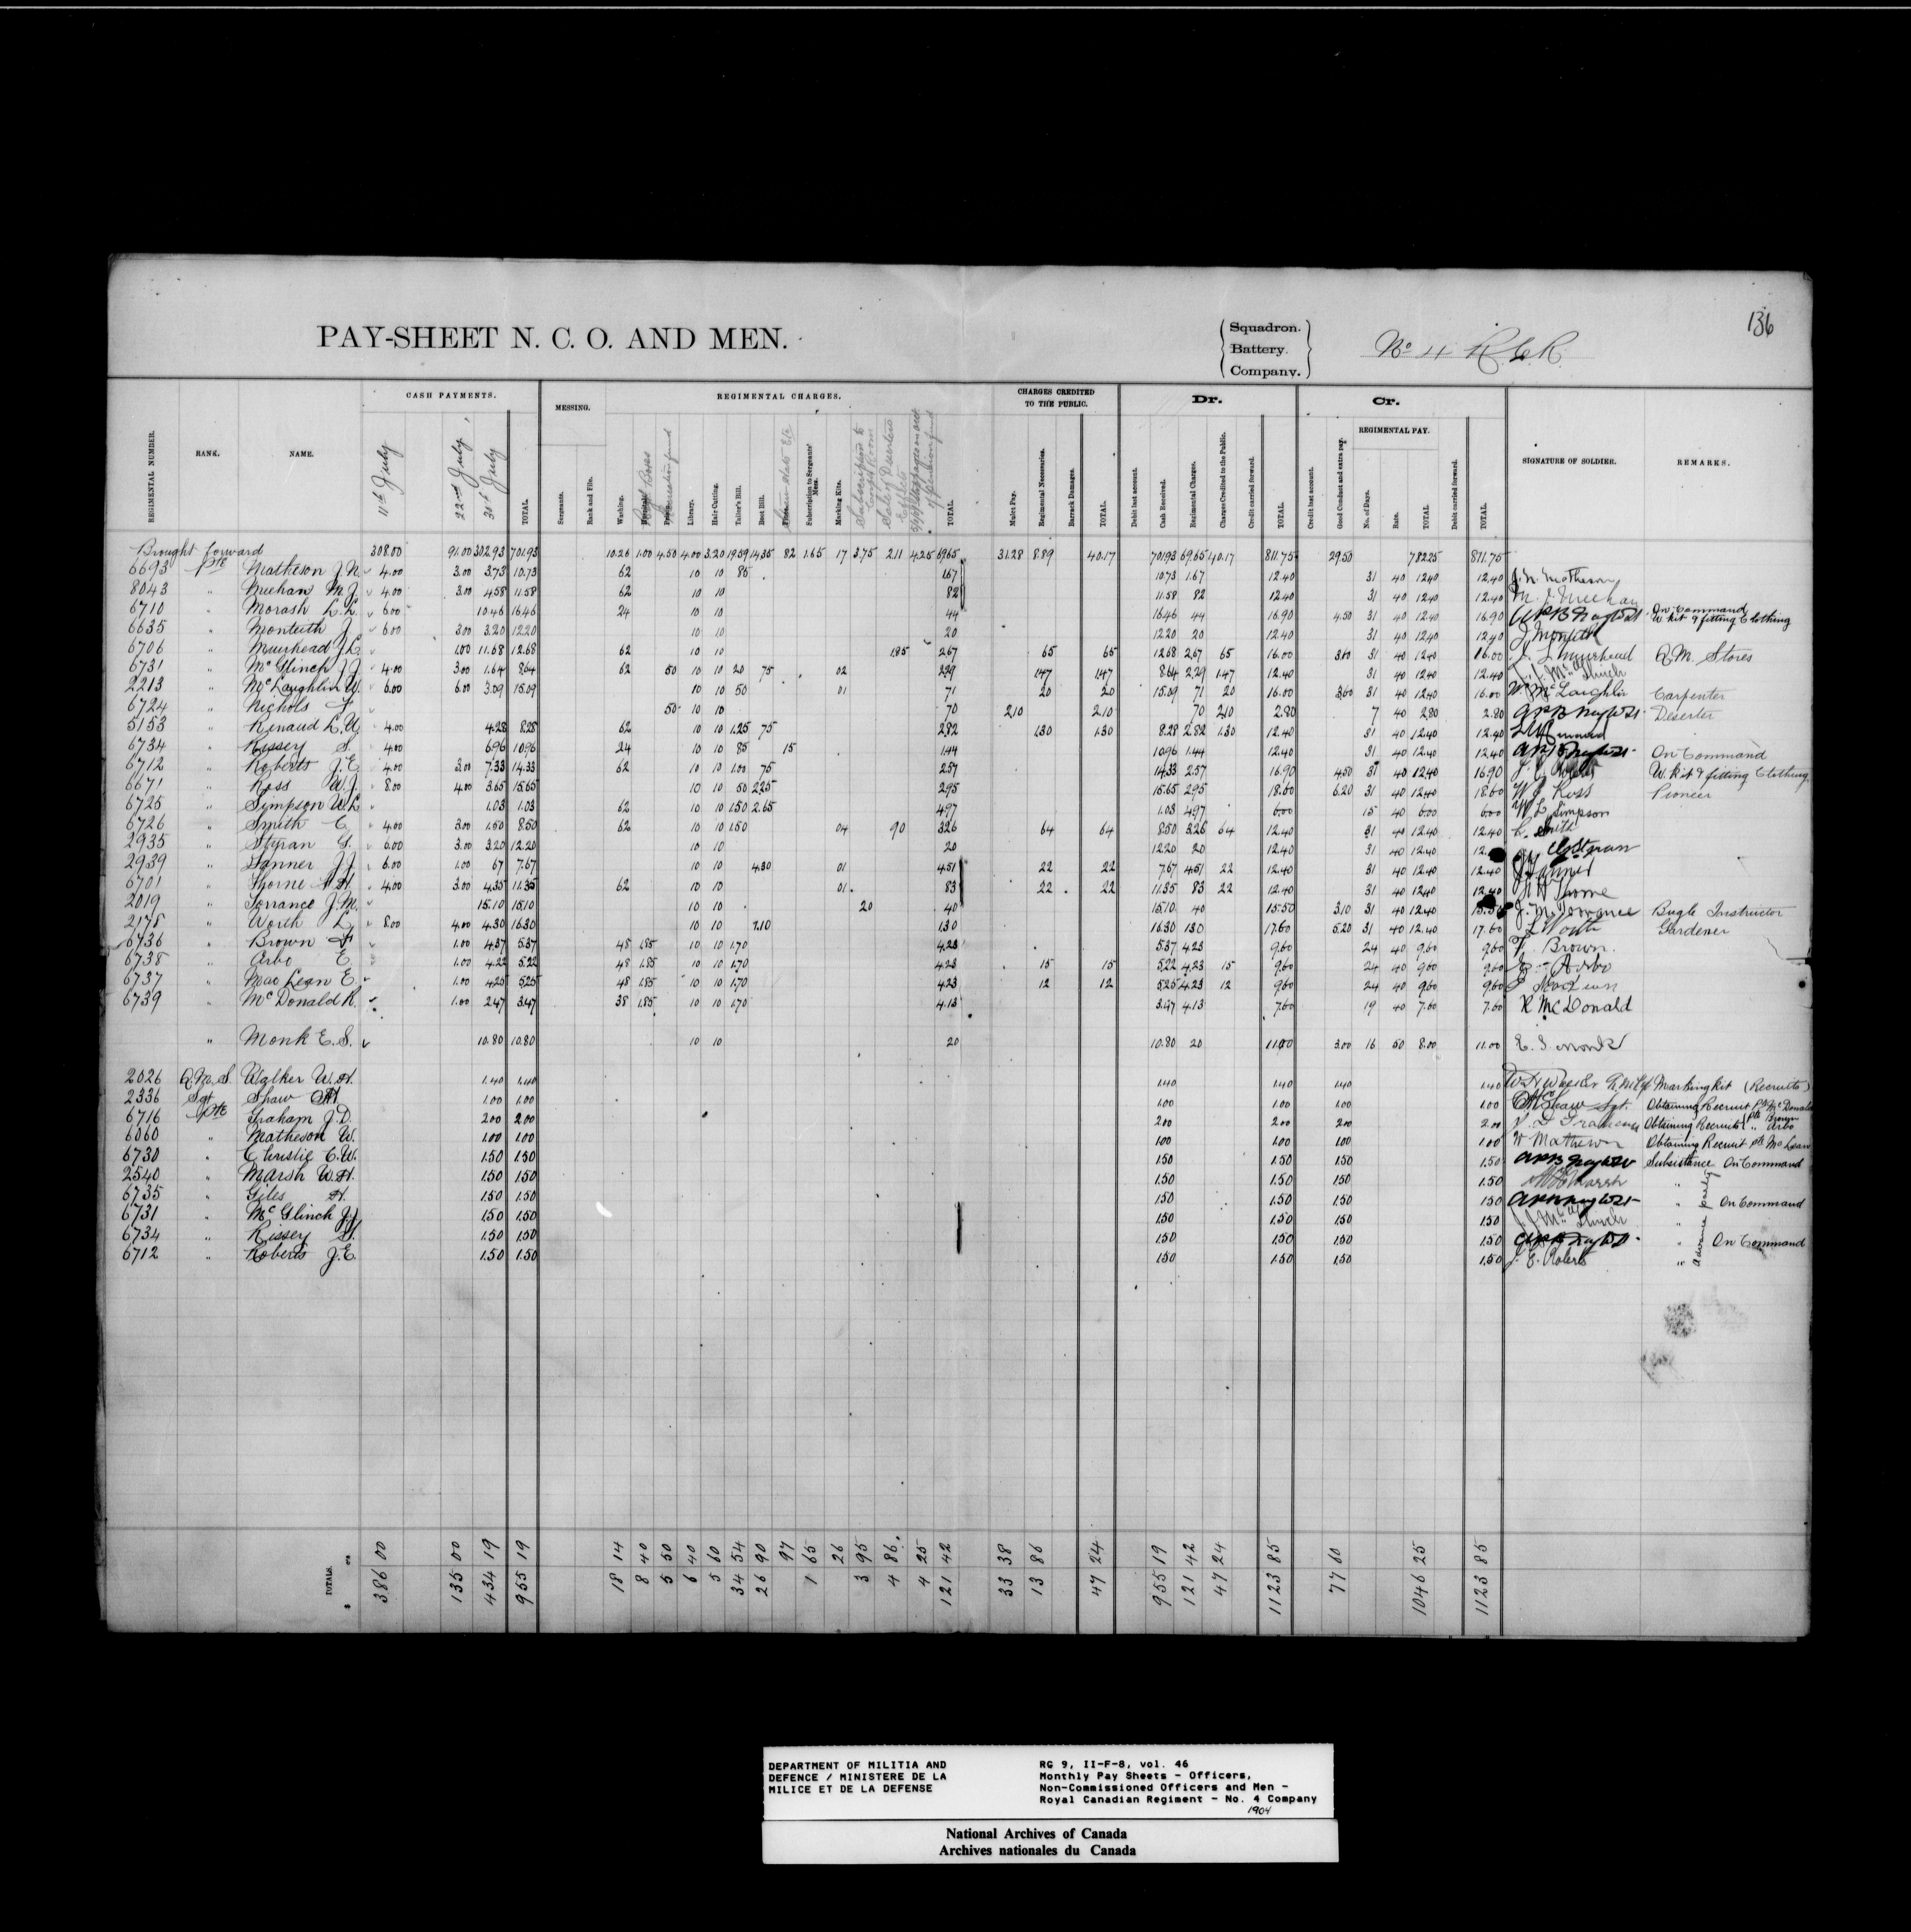 136
PAY-SHEET N. C. O. AND MEN.
Squadron.
Battery.
Company.
No 4 R.C.R.
CASH PAYMENTS.
MESSING.
REGIMENTAL CHARGES.
CHARGES CREDITED TO THE PUBLIC.
Dr.
Cr.
REGIMENTAL PAY.
REGIMENTAL NUMBER. RANK. NAME. 11th July 22nd July 30th July TOTAL. Sergeants. Rank and File. Washing. Library. Hair-Cutting. Tailor's Bill. Boot Bill. Subscription to Sergeants' Mess. Marking Kits. TOTAL Mulct Pay. Regimental Necessaries. Barrack Damages. TOTAL. Debit last account. Cash Received. Regimental Charges. Charges Credited to the Public. Credit carried forward. TOTAL Credit last account. Good Conduct and extra pay. No. of Days. Rate. TOTAL Debit carried forward. TOTAL. SIGNATURE OF SOLDIER. REMARKS.
Brought forward 308.00 91.00 302.93 701.93 10.26 1.00 4.50 4.00 3.20 19.59 14.35 82 1.65 17 3.75 2.11 4.25 69.65 31.28 8.89 40.17 701.93 69.65 40.17 811.75 29.50 782.25 811.75
6693 Pte Matheson J.N. 4.00 3.00 3.73 10.73 62 10 10 85 1.67 10.73 1.67 12.40 31 40 12.40 12.40 J. N. Matheson
8043 " Meehan M.J. 4.00 3.00 4.58 11.58 62 10 10 82 11.58 82 12.40 31 40 12.40 12.40 M. J. Meehan
6710 " Morash L.L. 6.00 10.46 16.46 24 10 10 44 16.46 44 16.90 4.50 31 40 12.40 16.90 On Command W. kit & fitting Clothing
6635 " Monteith J. 6.00 3.00 3.20 12.20 10 10 20 12.20 20 12.40 31 40 12.40 12.40 J. Monteith
6706 " Muirhead J.L. 1.00 11.68 12.68 62 10 10 1.85 2.67 65 65 12.68 2.67 65 16.00 3.60 31 40 12.40 16.00 J. L. Muirhead Q.M. Stores
6731 " McGlinch J.J. 4.00 3.00 1.64 8.64 62 50 10 10 20 75 02 2.29 1.47 1.47 8.64 2.29 1.47 12.40 31 40 12.40 12.40 J. J. McGlinch
2213 " McLaughlin W. 6.00 6.00 3.09 15.09 10 10 50 01 71 20 20 15.09 71 20 16.00 3.60 31 40 12.40 16.00 W McLaughlin Carpenter
6724 " Nichols F. 50 10 10 70 2.10 2.10 70 2.10 2.80 7 40 2.80 2.80 Deserter
5153 " Renaud L.U. 4.00 4.28 8.28 62 10 10 1.25 75 2.82 1.30 1.30 8.28 2.82 1.30 12.40 31 40 12.40 12.40 L U Renaud
6734 " Rissey S. 4.00 6.96 10.96 24 10 10 85 15 1.44 10.96 1.44 12.40 31 40 12.40 12.40 On Command
6712 " Roberts J.E. 4.00 3.00 7.33 14.33 62 10 10 1.00 75 2.57 14.33 2.57 16.90 4.50 31 40 12.40 16.90 J. E. Roberts W. kit & fitting Clothing
6671 " Ross W.J. 8.00 4.00 3.65 15.65 10 10 50 2.25 2.95 15.65 2.95 18.60 6.20 31 40 12.40 18.60 W J Ross Pioneer
6725 " Simpson W.L. 1.03 1.03 62 10 10 1.50 2.65 4.97 1.03 4.97 6.00 15 40 6.00 6.00 W L Simpson
6726 " Smith C. 4.00 3.00 1.50 8.50 62 10 10 1.50 04 90 3.26 64 64 8.50 3.26 64 12.40 31 40 12.40 12.40 C. Smith
2935 " Stepan G. 6.00 3.00 3.20 12.20 10 10 20 12.20 20 12.40 31 40 12.40
2939 " Tanner J.J. 6.00 1.00 67 7.67 10 10 4.30 01 4.51 22 22 7.67 4.51 22 12.40 31 40 12.40 12.40 J J Tanner
6701 " Thorne A.H. 4.00 3.00 4.35 11.35 62 10 10 01 83 22 22 11.35 83 22 12.40 31 40 12.40 12.40 A H Thorne
2019 " Torrance J.M. 15.10 15.10 10 10 20 40 15.10 40 15.50 3.10 31 40 12.40 15.50 J. M. Torrance Bugle Instructor
2178 " Worth L. 8.00 4.00 4.30 16.30 10 10 1.10 1.30 16.30 1.30 17.60 5.20 31 40 12.40 17.60 L Worth Gardener
6736 " Brown F. 1.00 4.37 5.37 48 1.85 10 10 1.70 4.23 5.37 4.23 9.60 24 40 9.60 9.60 F. Brown.
6738 " Arbo E. 1.00 4.22 5.22 48 1.85 10 10 1.70 4.23 15 15 5.22 4.23 15 9.60 24 40 9.60 9.60 E. Arbo
6737 " MacLean E. 1.00 4.25 5.25 48 1.85 10 10 1.70 4.23 12 12 5.25 4.23 12 9.60 24 40 9.60 9.60 E MacLean
6739 " McDonald R. 1.00 2.47 3.47 38 1.85 10 10 1.70 4.13 3.47 4.13 7.60 19 40 7.60 7.60 R McDonald
" Monk E.S. 10.80 10.80 10 10 20 10.80 20 11.00 3.00 16 50 8.00 11.00 E. S. Monk
2026 Q.M.S. Walker W.H. 1.40 1.40 1.40 1.40 1.40 1.40 W H Walker Q.M.Sgt Marking kit (Recruits)
2336 Sgt Shaw 1.00 1.00 1.00 1.00 1.00 1.00 Shaw Sgt. Obtaining Recruit Pte McDonald
6716 Pte Graham J.D. 2.00 2.00 2.00 2.00 2.00 2.00 J. D Graham Obtaining Recruits Pte Brown " Arbo
6060 " Matheson W. 1.00 1.00 1.00 1.00 1.00 1.00 W Matheson Obtaining Recruit Pte McLean
6730 " Christie C.W. 1.50 1.50 1.50 1.50 1.50 1.50 Subsistance On Command
2540 " Marsh W.H. 1.50 1.50 1.50 1.50 1.50 1.50 W H Marsh "
6735 " Giles H. 1.50 1.50 1.50 1.50 1.50 1.50 " On Command
6731 " McGlinch J.J. 1.50 1.50 1.50 1.50 1.50 1.50 J. J. McGlinch "
6734 " Rissey S. 1.50 1.50 1.50 1.50 1.50 1.50 " On Command
6712 " Roberts J.E. 1.50 1.50 1.50 1.50 1.50 1.50 J. E. Roberts "
Advance party
TOTALS. $ cts 386 00 135 00 434 19 955 19 18 14 8 40 5 50 6 40 5 60 34 54 26 90 97 1 65 26 3 95 4 86 4 25 121 42 33 38 13 86 47 24 955 19 121 42 47 24 1123 85 77 60 1046 25 1123 85
DEPARTMENT OF MILITIA AND
DEFENCE / MINISTERE DE LA
MILICE ET DE LA DEFENSE
RG 9, II-F-8, vol. 46
Monthly Pay Sheets - Officers,
Non-Commissioned Officers and Men -
Royal Canadian Regiment - No. 4 Company
1904
National Archives of Canada
Archives nationales du Canada